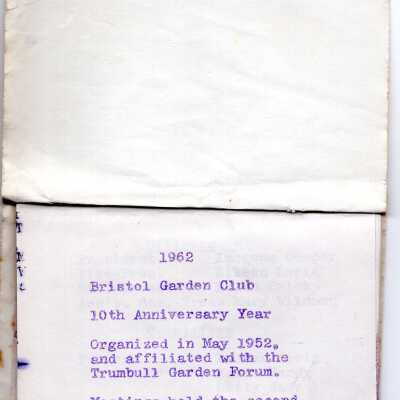 1962
Bristol Garden Club
10th Anniversary Year
Organized in May 1952,
and affiliated with the
Trumbull Garden Forum.
Meetings held the second